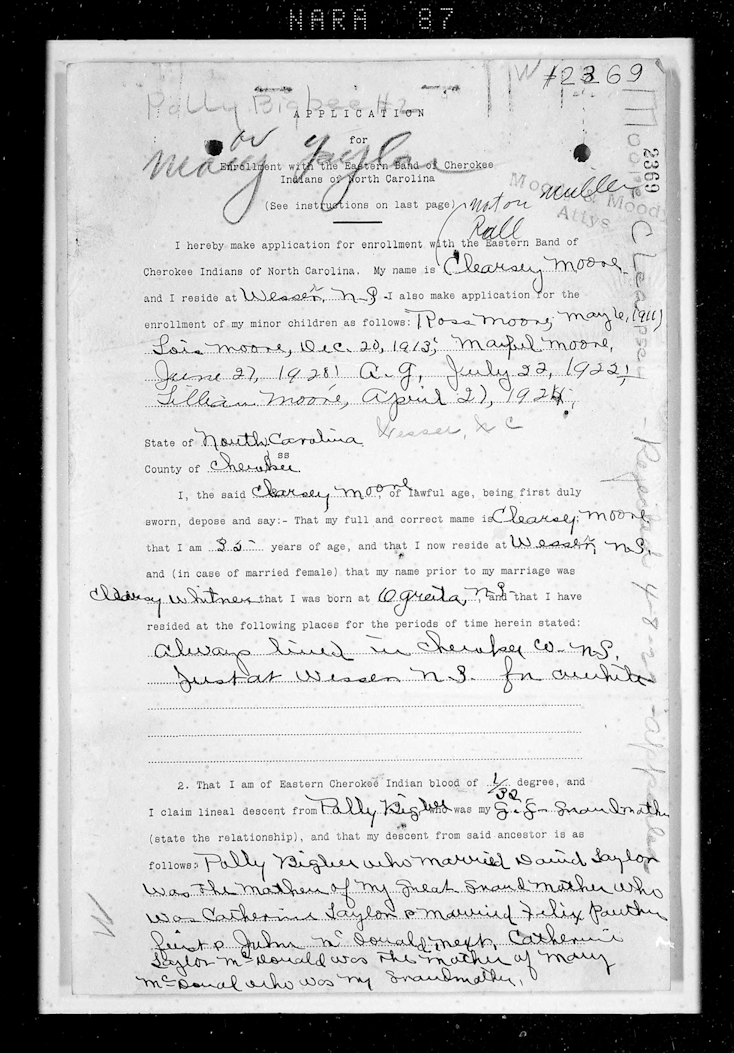 NARA 87
#2369
Polly Bigbee #2
APPLICATION
or
for
Mary Taylor
Enrollment with the Eastern Band of Cherokee
Indians of North Carolina
(See instructions on last page)
not on Muller
Roll
Moody & Moody
Attys
2369
Moore Clearsey - Rejected 4-8-29 - appealed
I hereby make application for enrollment with the Eastern Band of
Cherokee Indians of North Carolina. My name is Clearsey Moore
and I reside at Wesser, N.C. I also make application for the
enrollment of my minor children as follows: Ross Moore, May 6, 1911)
Lois Moore, Dec. 20, 1913; Moore,
June 27, 1928! A.G, July 22, 1922!,
Lillian Moore, April 27, 1924.
Wesser, N C
State of North Carolina
ss
County of Cherokee
I, the said Clearsey Moore, of lawful age, being first duly
sworn, depose and say:- That my full and correct mame is Clearsey Moore
that I am 35 years of age, and that I now reside at Wesser, N.C.
and (in case of married female) that my name prior to my marriage was
Clearsy Whitner that I was born at Ogreeta, N.C., and that I have
resided at the following places for the periods of time herein stated:
Always lived in Cherokee Co. N.C.
Just at Wesser N.C. for awhile
2. That I am of Eastern Cherokee Indian blood of 1/32 degree, and
I claim lineal descent from Polly Bigbee who was my G.G- Grandmother
(state the relationship), and that my descent from said ancestor is as
follows: Polly Bigbee who married David Taylor
was the mother of my great grand mother who
was Catherine Taylor & married Felix Panther
first & John McDonald next, Catherine
Taylor McDonald was the mother of Mary
McDonal who was my Grandmother.